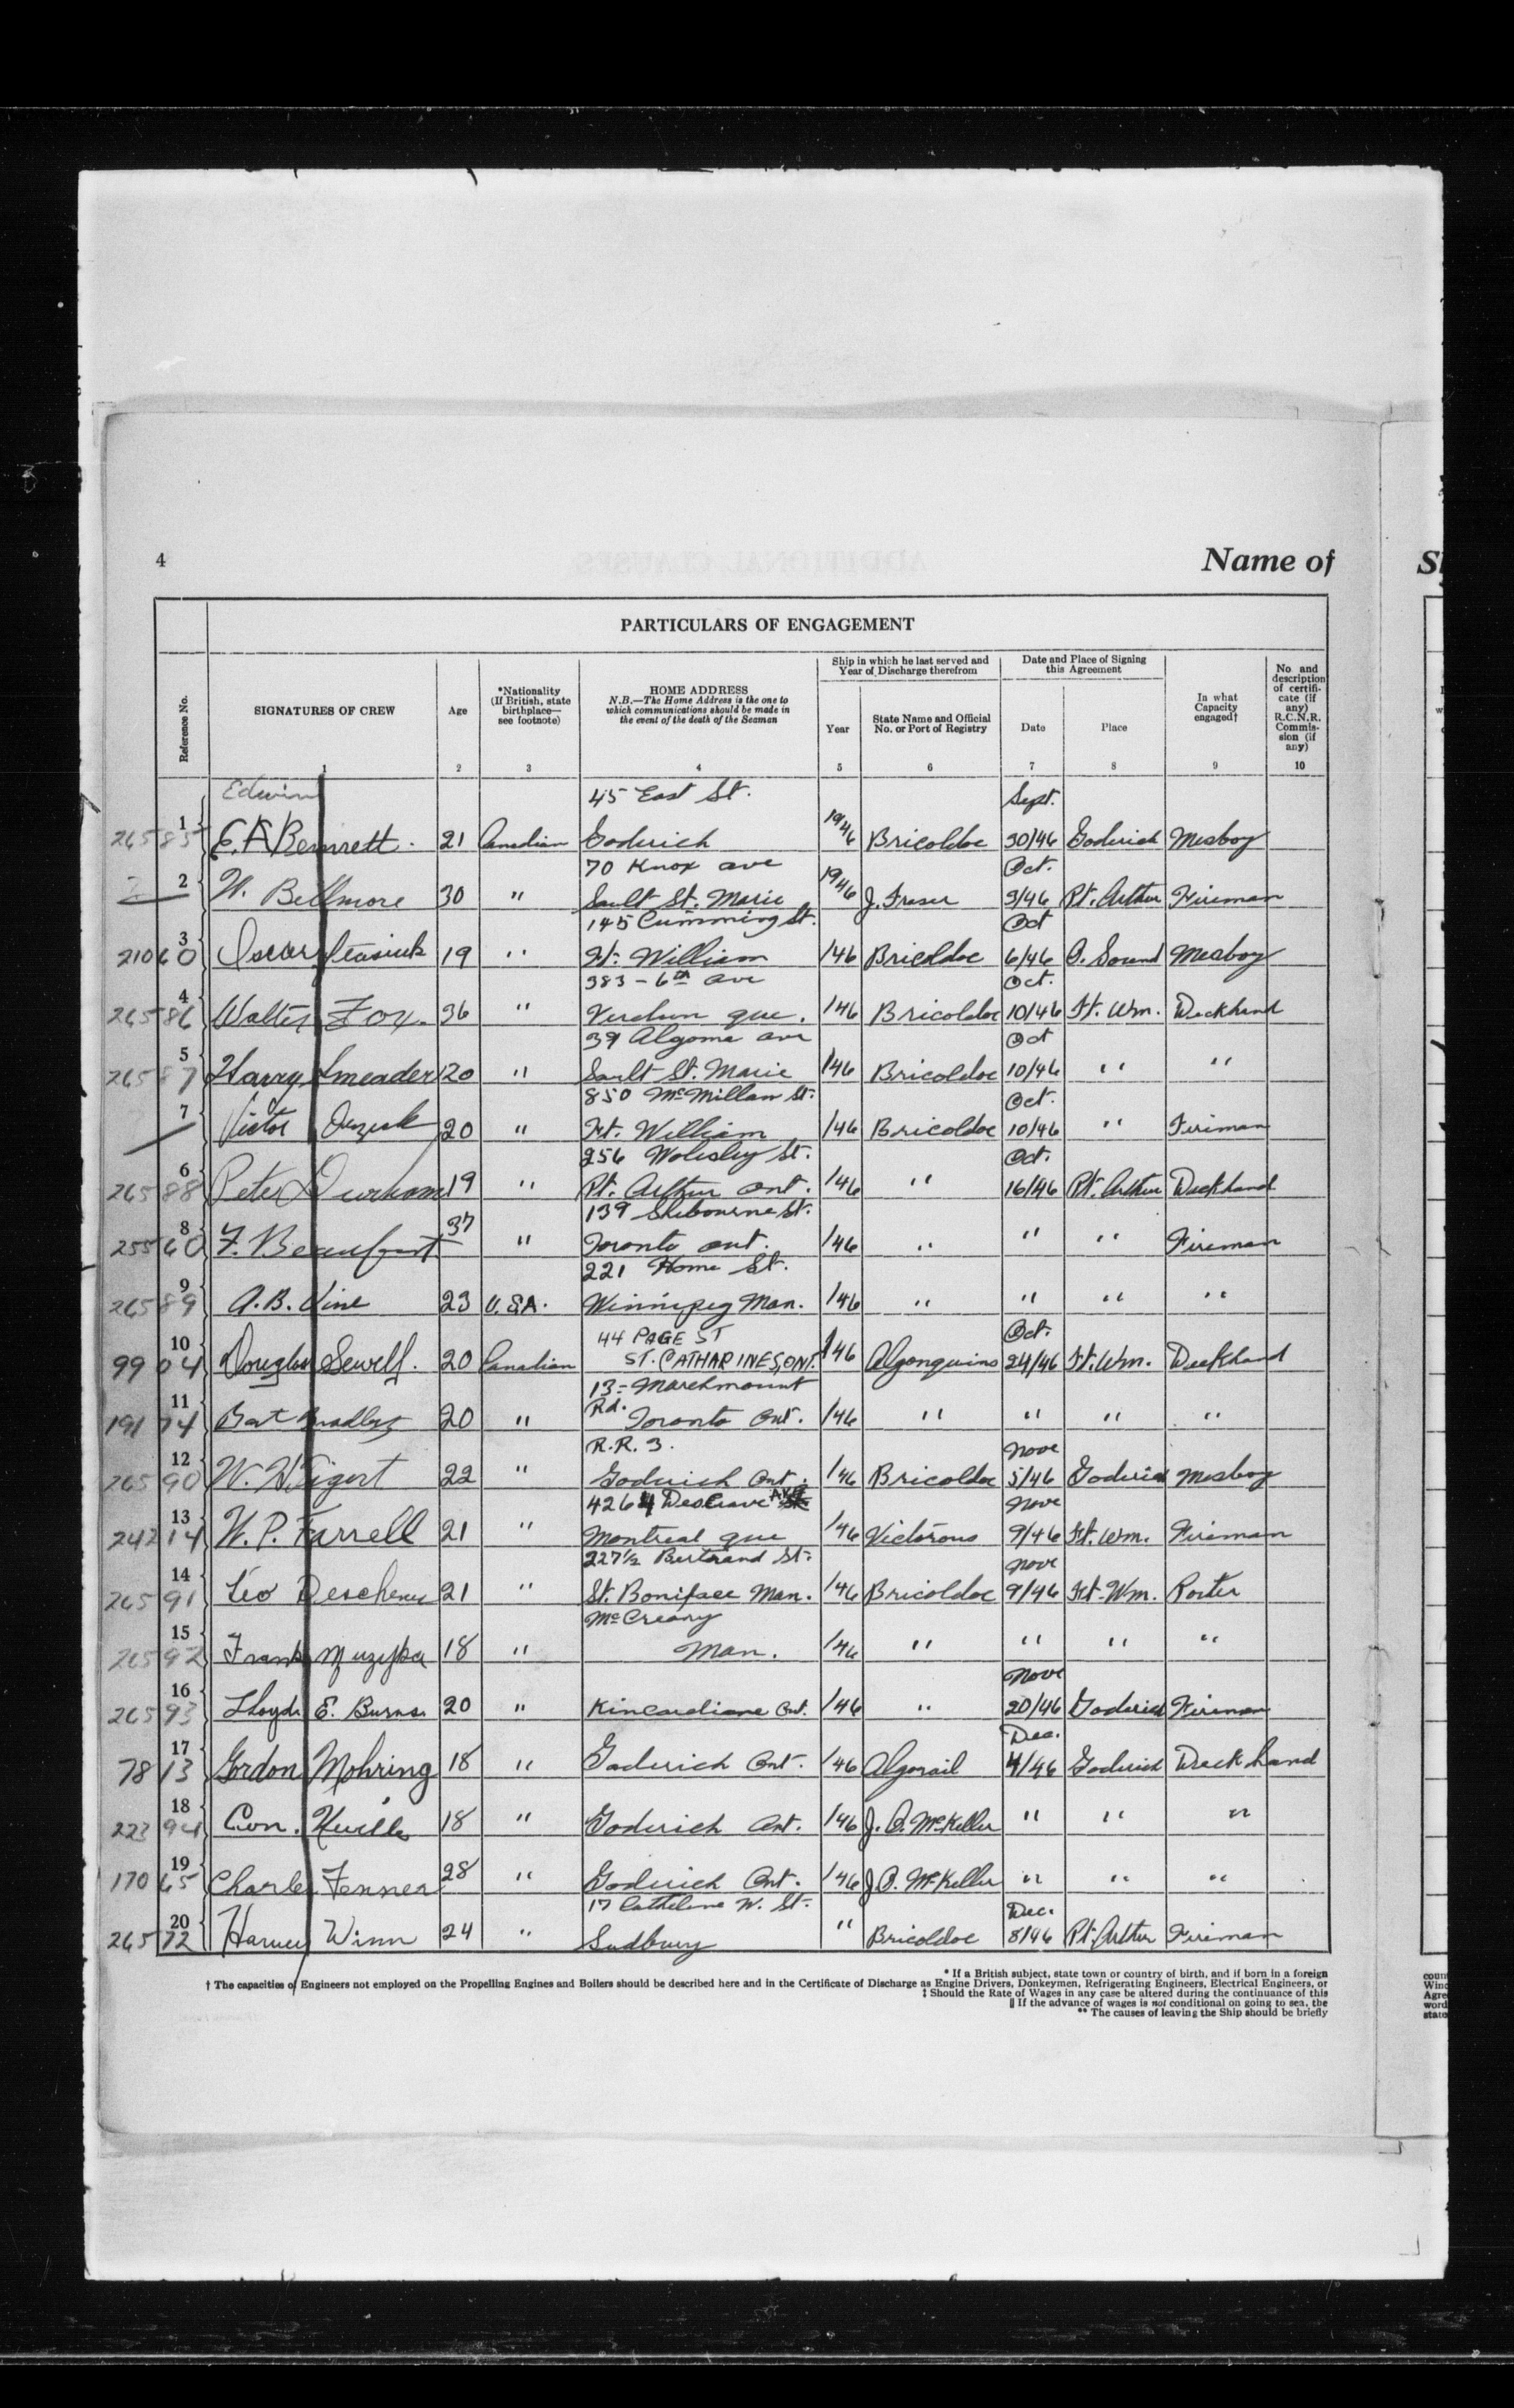 4
Name of
PARTICULARS OF ENGAGEMENT
Reference No.
SIGNATURES OF CREW
Age
*Nationality
(If British, state
birthplace—
see footnote)
HOME ADDRESS
N.B.—The Home Address is the one to
which communications should be made in
the event of the death of the Seaman
Ship in which he last served and
Year of Discharge therefrom
Year
State Name and Official
No. or Port of Registry
Date and Place of Signing
this Agreement
Date
Place
In what
Capacity
engaged†
No. and
description
of certifi-
cate (if
any),
R.C.N.R.
Commis-
sion (if
any)
1 2 3 4 5 6 7 8 9 10
Edwin 45 East St. Sept.
26585 1 E. A Bennett. 21 Canadian Goderich 1946 Bricoldoc 30/46 Goderich Mesboy
70 Knox ave Oct.
2 W. Bellmore 30 " Sault St. Marie 1946 J. Fraser 3/46 Pt. Arthur Fireman
145 Cumming St. Oct
21060 3 Oscar 19 " Ft. William /46 Bricoldoc 6/46 O. Sound Mesboy
383 - 6th ave Oct.
26586 4 Walter Fox. 36 " Verdun que. /46 Bricoldoc 10/46 Ft. Wm. Deckhand
39 Algoma ave Oct
26587 5 Harry Smeader 20 " Sault St. Marie /46 Bricoldoc 10/46 " "
850 McMillan St. Oct.
7 Victor 20 " Ft. William /46 Bricoldoc 10/46 " Fireman
256 Wolesley St. Oct.
26588 6 Peter Durham 19 " Pt. Arthur Ont. /46 " 16/46 Pt. Arthur Deckhand
139 Shebourne St.
25560 8 F. Beaufort 37 " Toronto Ont. /46 " " " Fireman
221 Home St.
26589 9 A. B. Vine 23 U.S.A. Winnipeg Man. /46 " " " "
44 PAGE ST Oct.
9904 10 Douglas Sewell. 20 Canadian ST. CATHARINES, ONT. /46 Algonquins 24/46 Ft. Wm. Deckhand
13 - Marchmount
19174 11 Bradley 20 " Rd. Toronto Ont. /46 " " " "
R.R. 3. Nove
26590 12 W. H. 22 " Goderich Ont. /46 Bricoldoc 5/46 Goderich Mesboy
4264 AVE Nove
24214 13 W. P. Farrell 21 " Montreal que /46 Victorous 9/46 Ft. Wm. Fireman
227½ Bertrand St. Nove
26591 14 Leo Deschenes 21 " St. Boniface Man. /46 Bricoldoc 9/46 Ft. Wm. Porter
McCreary
26592 15 Frank Muzyka 18 " Man. /46 " " " "
Nove
26593 16 Lloyd E. Burns. 20 " Kincardiane Ont. /46 " 20/46 Goderich Fireman
Dec.
7813 17 Gordon Mohring 18 " Goderich Ont. /46 Algorail 4/46 Goderich Deck hand
22394 18 Con. 18 " Goderich Ont. /46 J. O. McKeller " " "
17065 19 Charles Fenner 28 " Goderich Ont. /46 J. O. McKeller " " "
17 W. St. Dec.
26572 20 Harvey Winn 24 " Sudbury " Bricoldoc 8/46 Pt. Arthur Fireman
* If a British subject, state town or country of birth, and if born in a foreign
† The capacities of Engineers not employed on the Propelling Engines and Boilers should be described here and in the Certificate of Discharge as Engine Drivers, Donkeymen, Refrigerating Engineers, Electrical Engineers, or
‡ Should the Rate of Wages in any case be altered during the continuance of this
|| If the advance of wages is not conditional on going to sea, the
** The causes of leaving the Ship should be briefly